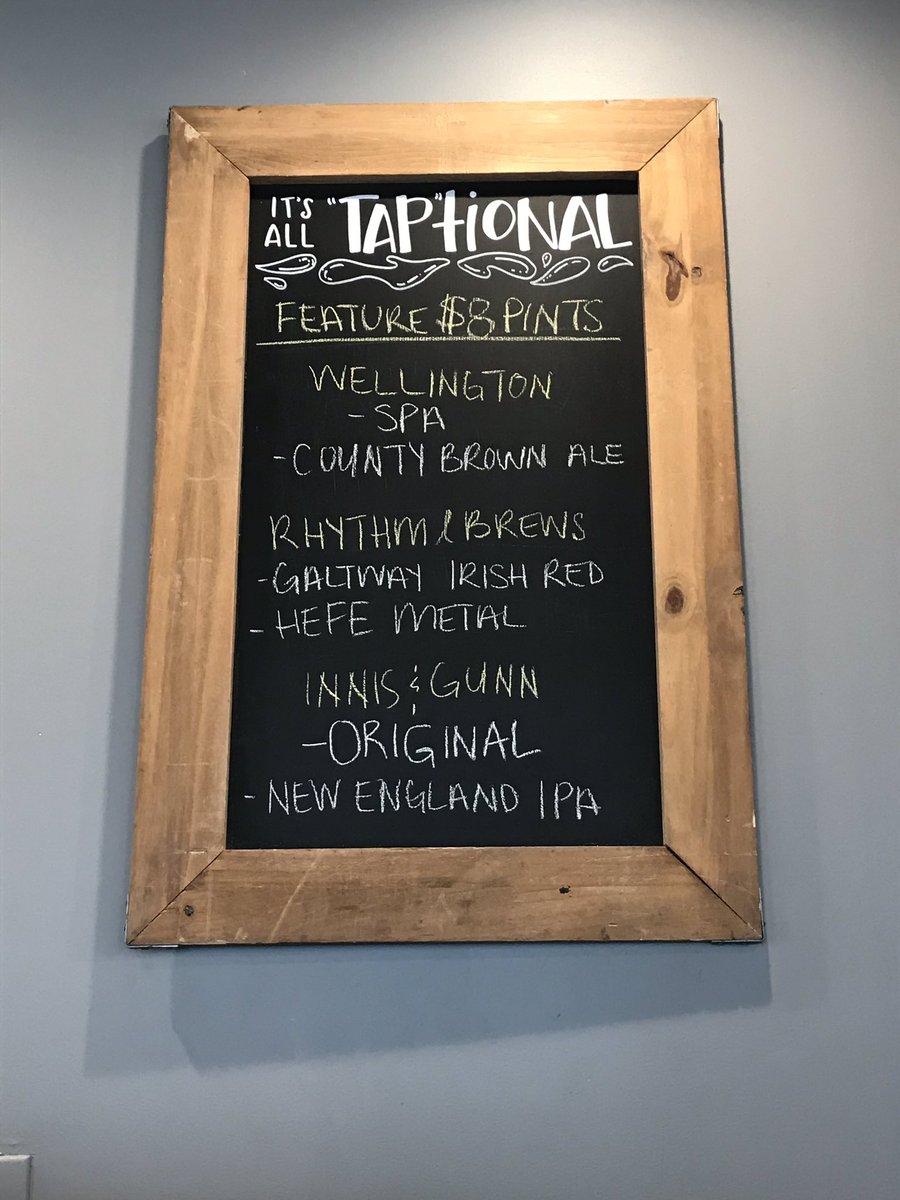 IT'S ALL "TAP"tiONAL
FEATURE $8 PINTS
WELLINGTON
- SPA
- COUNTY BROWN ALE
RHYTHM & BREWS
- GALTWAY IRISH RED
- HEFE METAL
INNIS & GUNN
- ORIGINAL
- NEW ENGLAND IPA